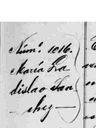 Núm. 1016.
María Gra
dislao San
chez